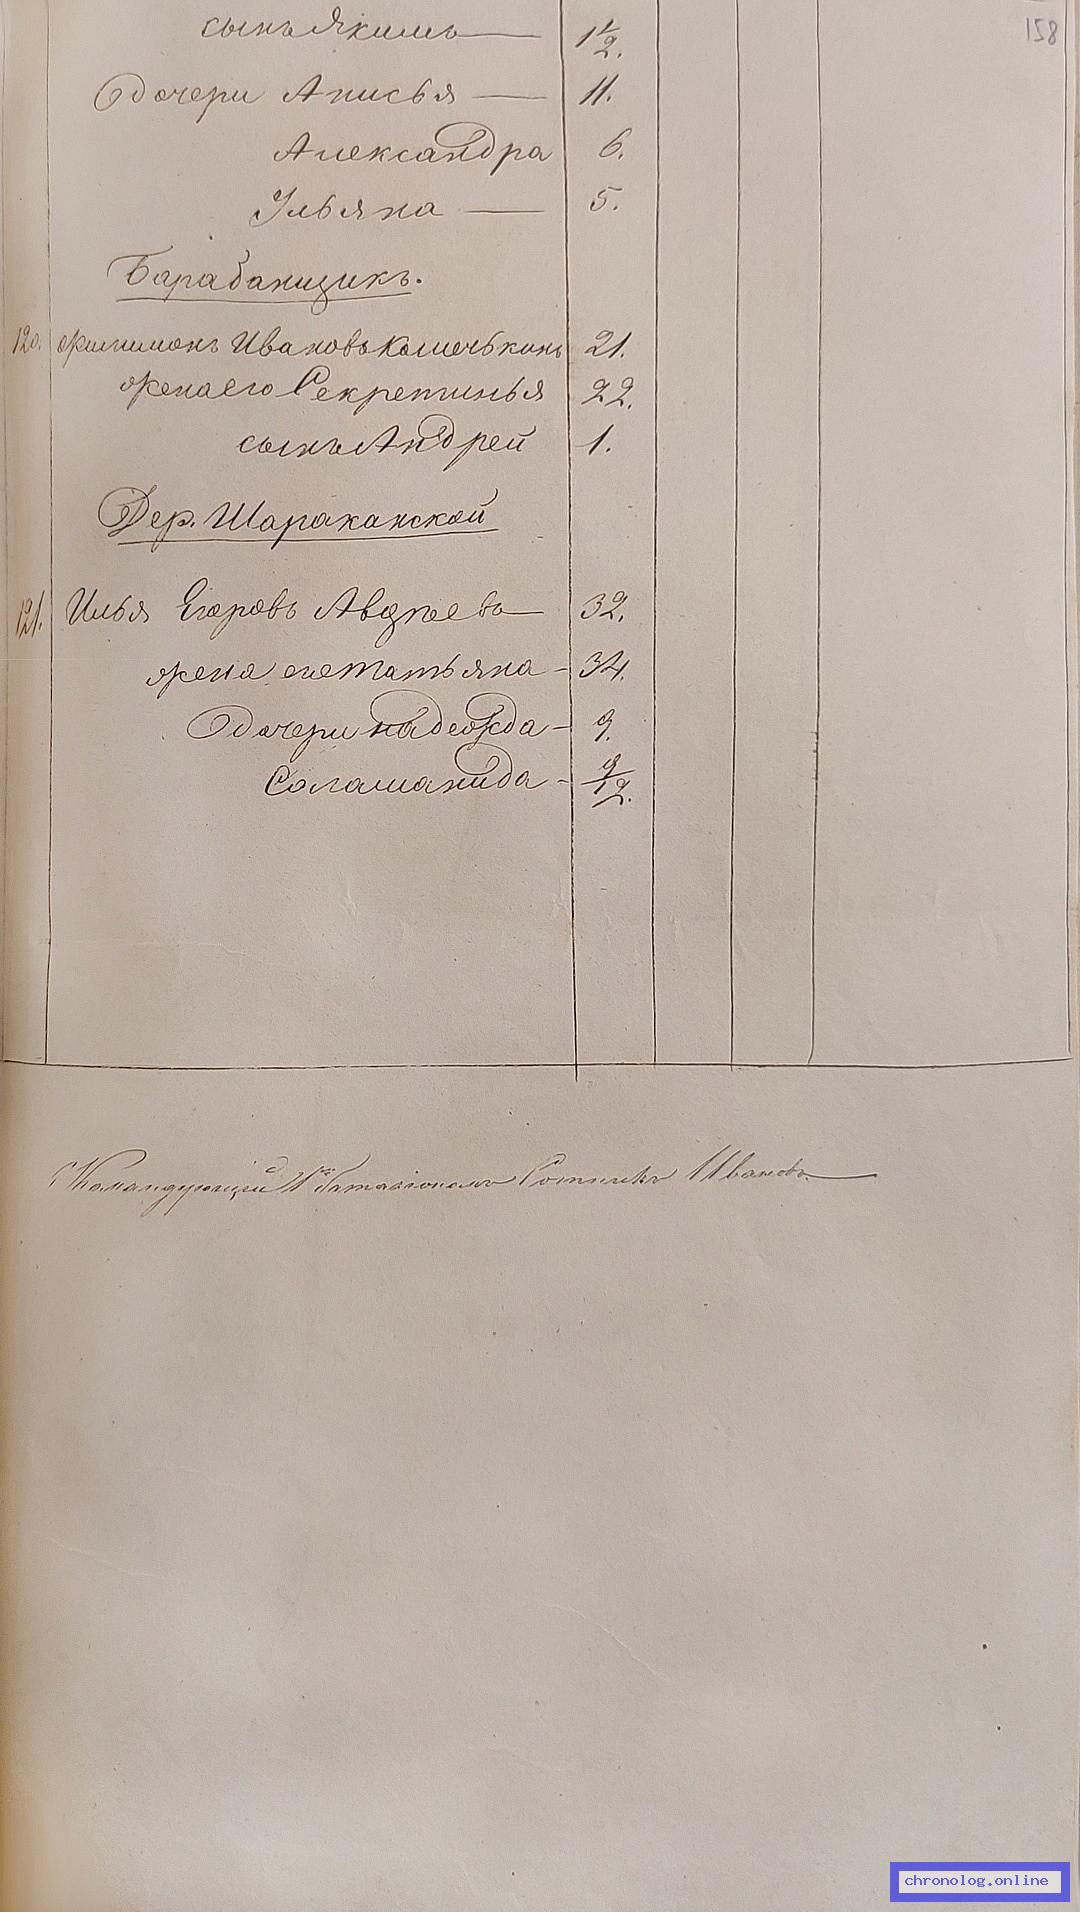 158
сынъ Якимъ 1 1/2.
Дочери Анисья 11.
Александра 6.
Ульяна 5.
Барабанщикъ.
120. Филимонъ Ивановъ 21.
жена его Секретинья 22.
сынъ Андрей 1.
Дер. Шараканской
121. Илья Егоровъ Авдѣевъ 32.
жена его Татьяна 34.
Дочери Надежда 9.
Соламанида 9/12.
Командующій баталіономъ Сотникъ Ивановъ
chronolog.online